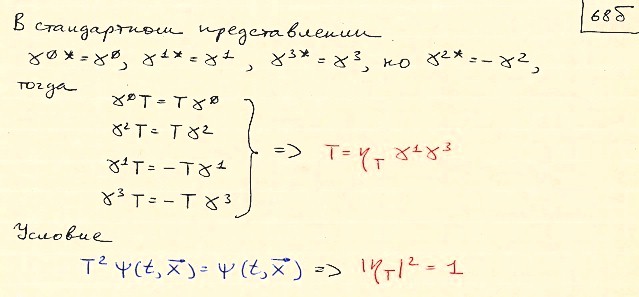 68б
В стандартном представлении
γ⁰* = γ⁰, γ¹* = γ¹, γ³* = γ³, но γ²* = -γ²,
тогда
γ⁰T = Tγ⁰
γ²T = Tγ²
γ¹T = -Tγ¹
γ³T = -Tγ³
=> T = η_T γ¹γ³
Условие
T² Ψ(t, x⃗) = Ψ(t, x⃗) => |η_T|² = 1